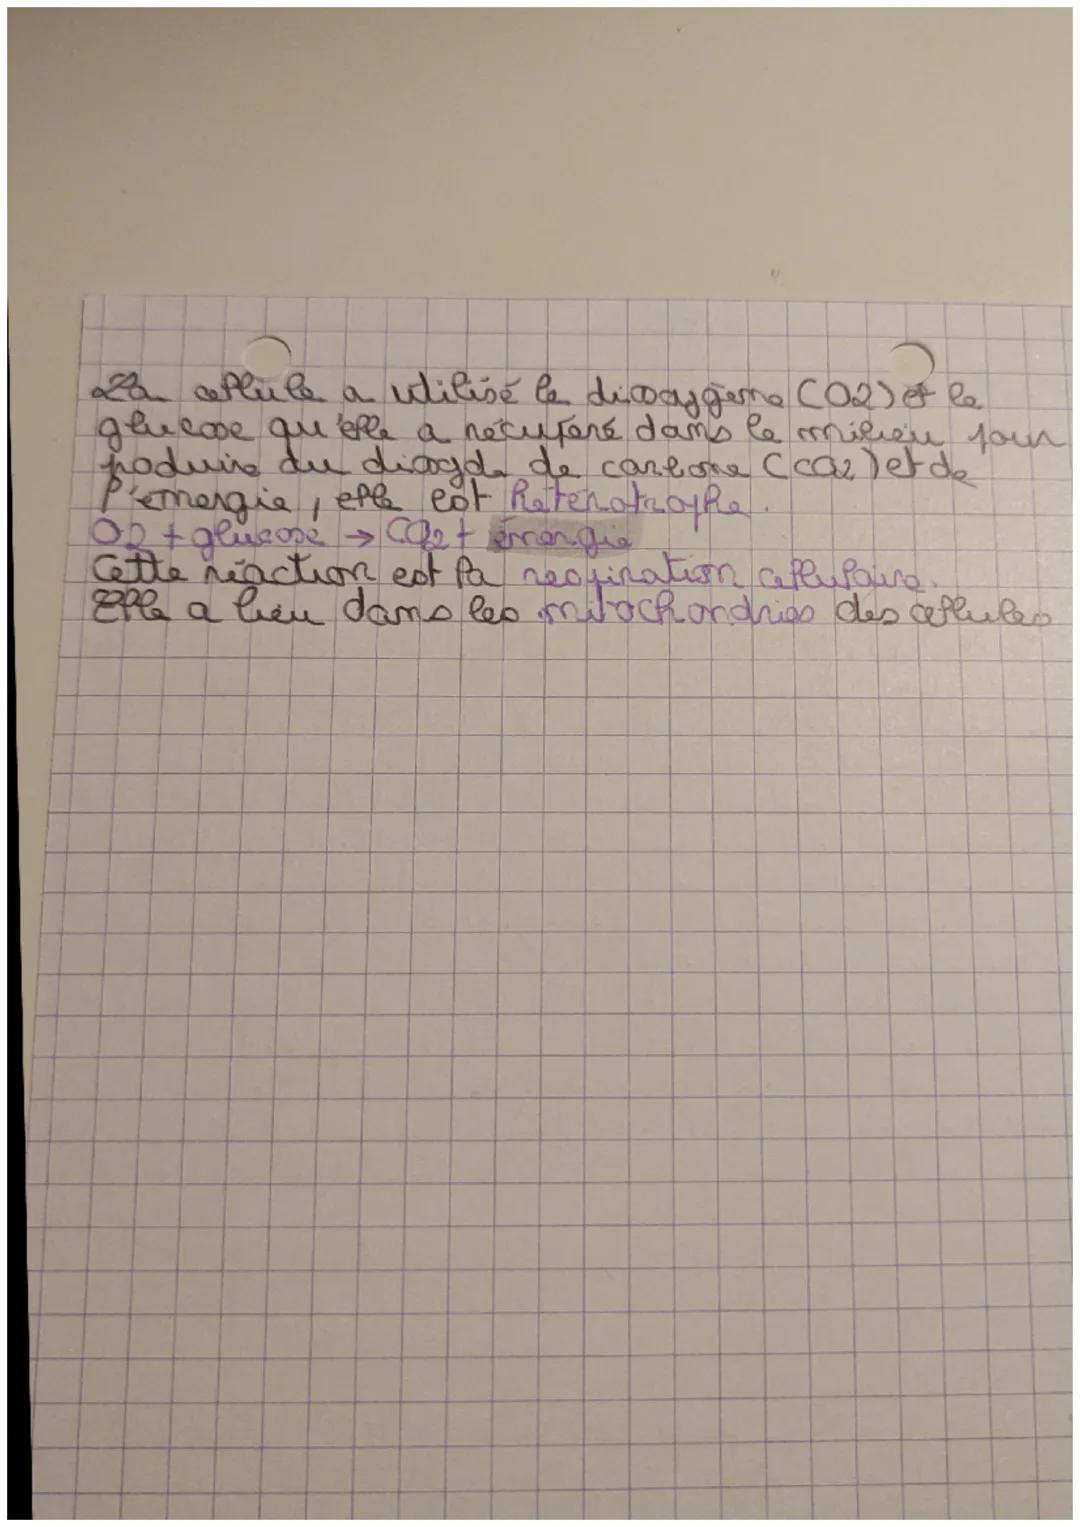 La cellule a utilisé le dioxygène (O2) et le
glucose qu'elle a récupéré dans le milieu pour
produire du dioxyde de carbone (CO2) et de
l'énergie, elle est hétérotrophe.
O2 + glucose → CO2 + énergie
Cette réaction est la respiration cellulaire.
Elle a lieu dans les mitochondries des cellules